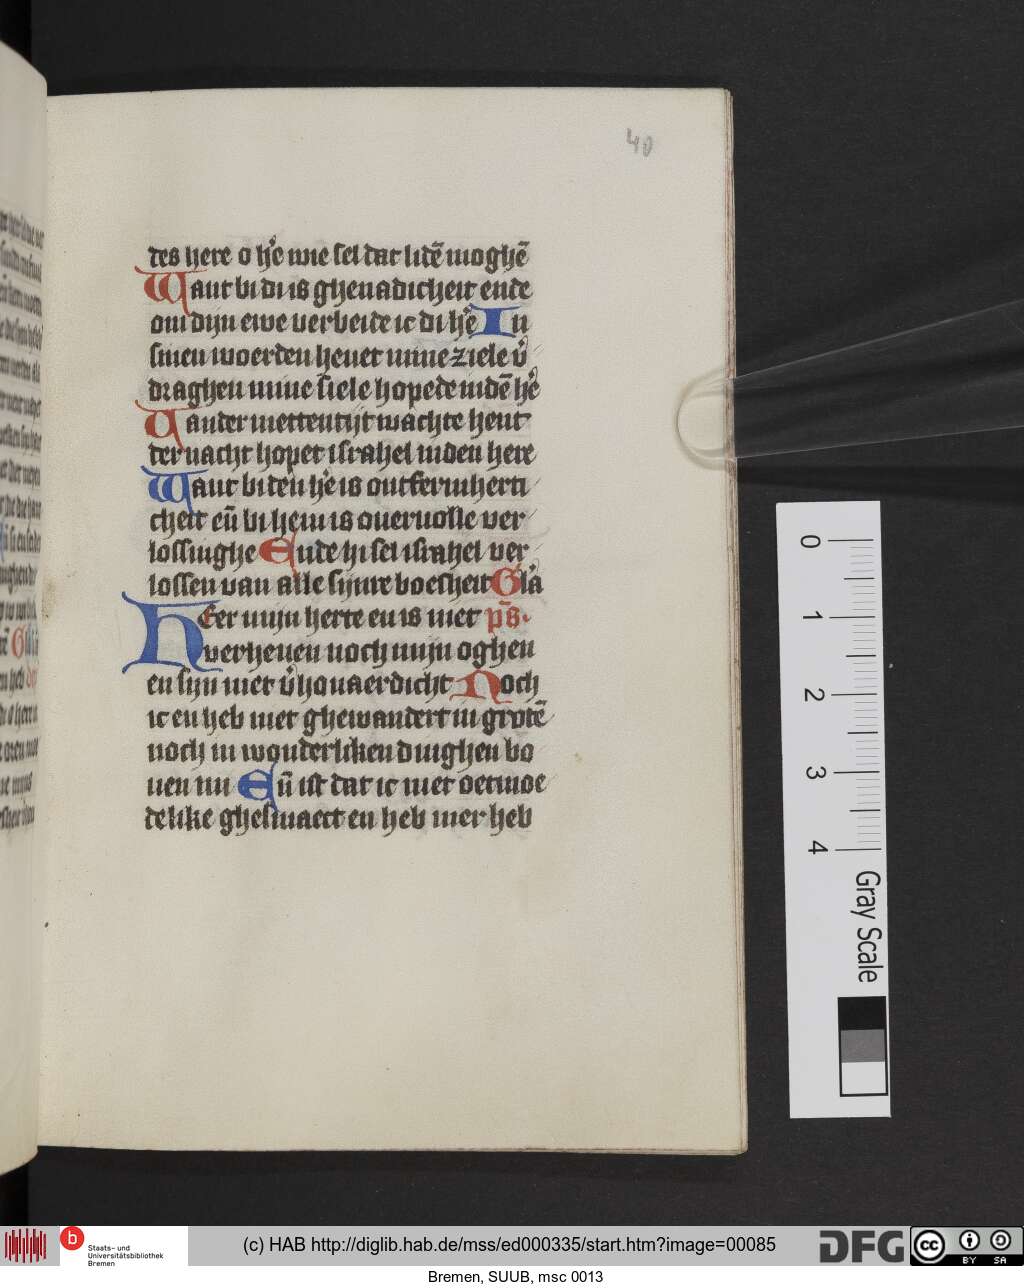 40
des here o hẽ wie sel dat lidẽ moghẽ
Want bi di is ghenadicheit ende
om dijn ewe verbeide ic di hẽ In
sinen woerden hevet mine ziele v̾
draghen mine siele hopede indẽ hẽ
Vander mettentijt wachte hent
ter nacht hopet israhel inden here
Want biden hẽ is ontfermherti
cheit eñ bi hem is overvolle ver
lossinghe Ende hi sel israhel ver
lossen van alle sijnre boesheit Glã
HEer mijn herte en is niet p̃s.
verheven noch mijn oghen
en sijn niet v̾hovaerdicht Noch
ic en heb niet ghewandert in grotẽ
noch in wonderliken dinghen bo
ven mi Eñ ist dat ic niet oetmoe
delike ghesmaect en heb mer heb
0
1
2
3
4
Gray Scale
b Staats- und
Universitätsbibliothek
Bremen
(c) HAB http://diglib.hab.de/mss/ed000335/start.htm?image=00085
DFG
cc BY SA
Bremen, SUUB, msc 0013